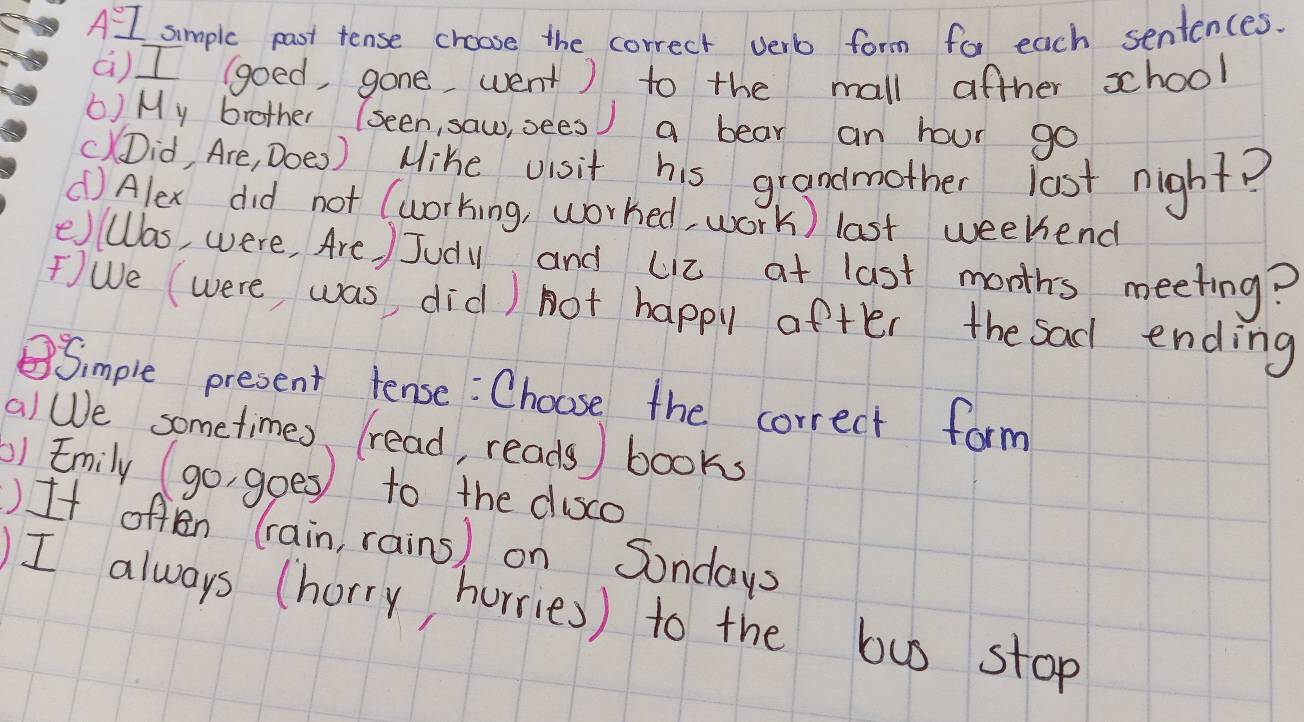 A=I simple past tense choose the correct verb form for each sentences.
a) I (goed, gone, went) to the mall afther school
b) My brother (seen, saw, sees) a bear an hour go
c) (Did, Are, Does) Mike visit his grandmother last night?
d) Alex did not (working, worked, work) last weekend
e) (Was, were, Are,) Judy and Liz at last months meeting?
F) We (were, was, did) not happy after the sad ending
B Simple present tense: Choose the correct form
a) We sometimes (read, reads) books
b) Emily (go, goes) to the disco
) It often (rain, rains) on Sondays
) I always (horry, hurries) to the bus stop